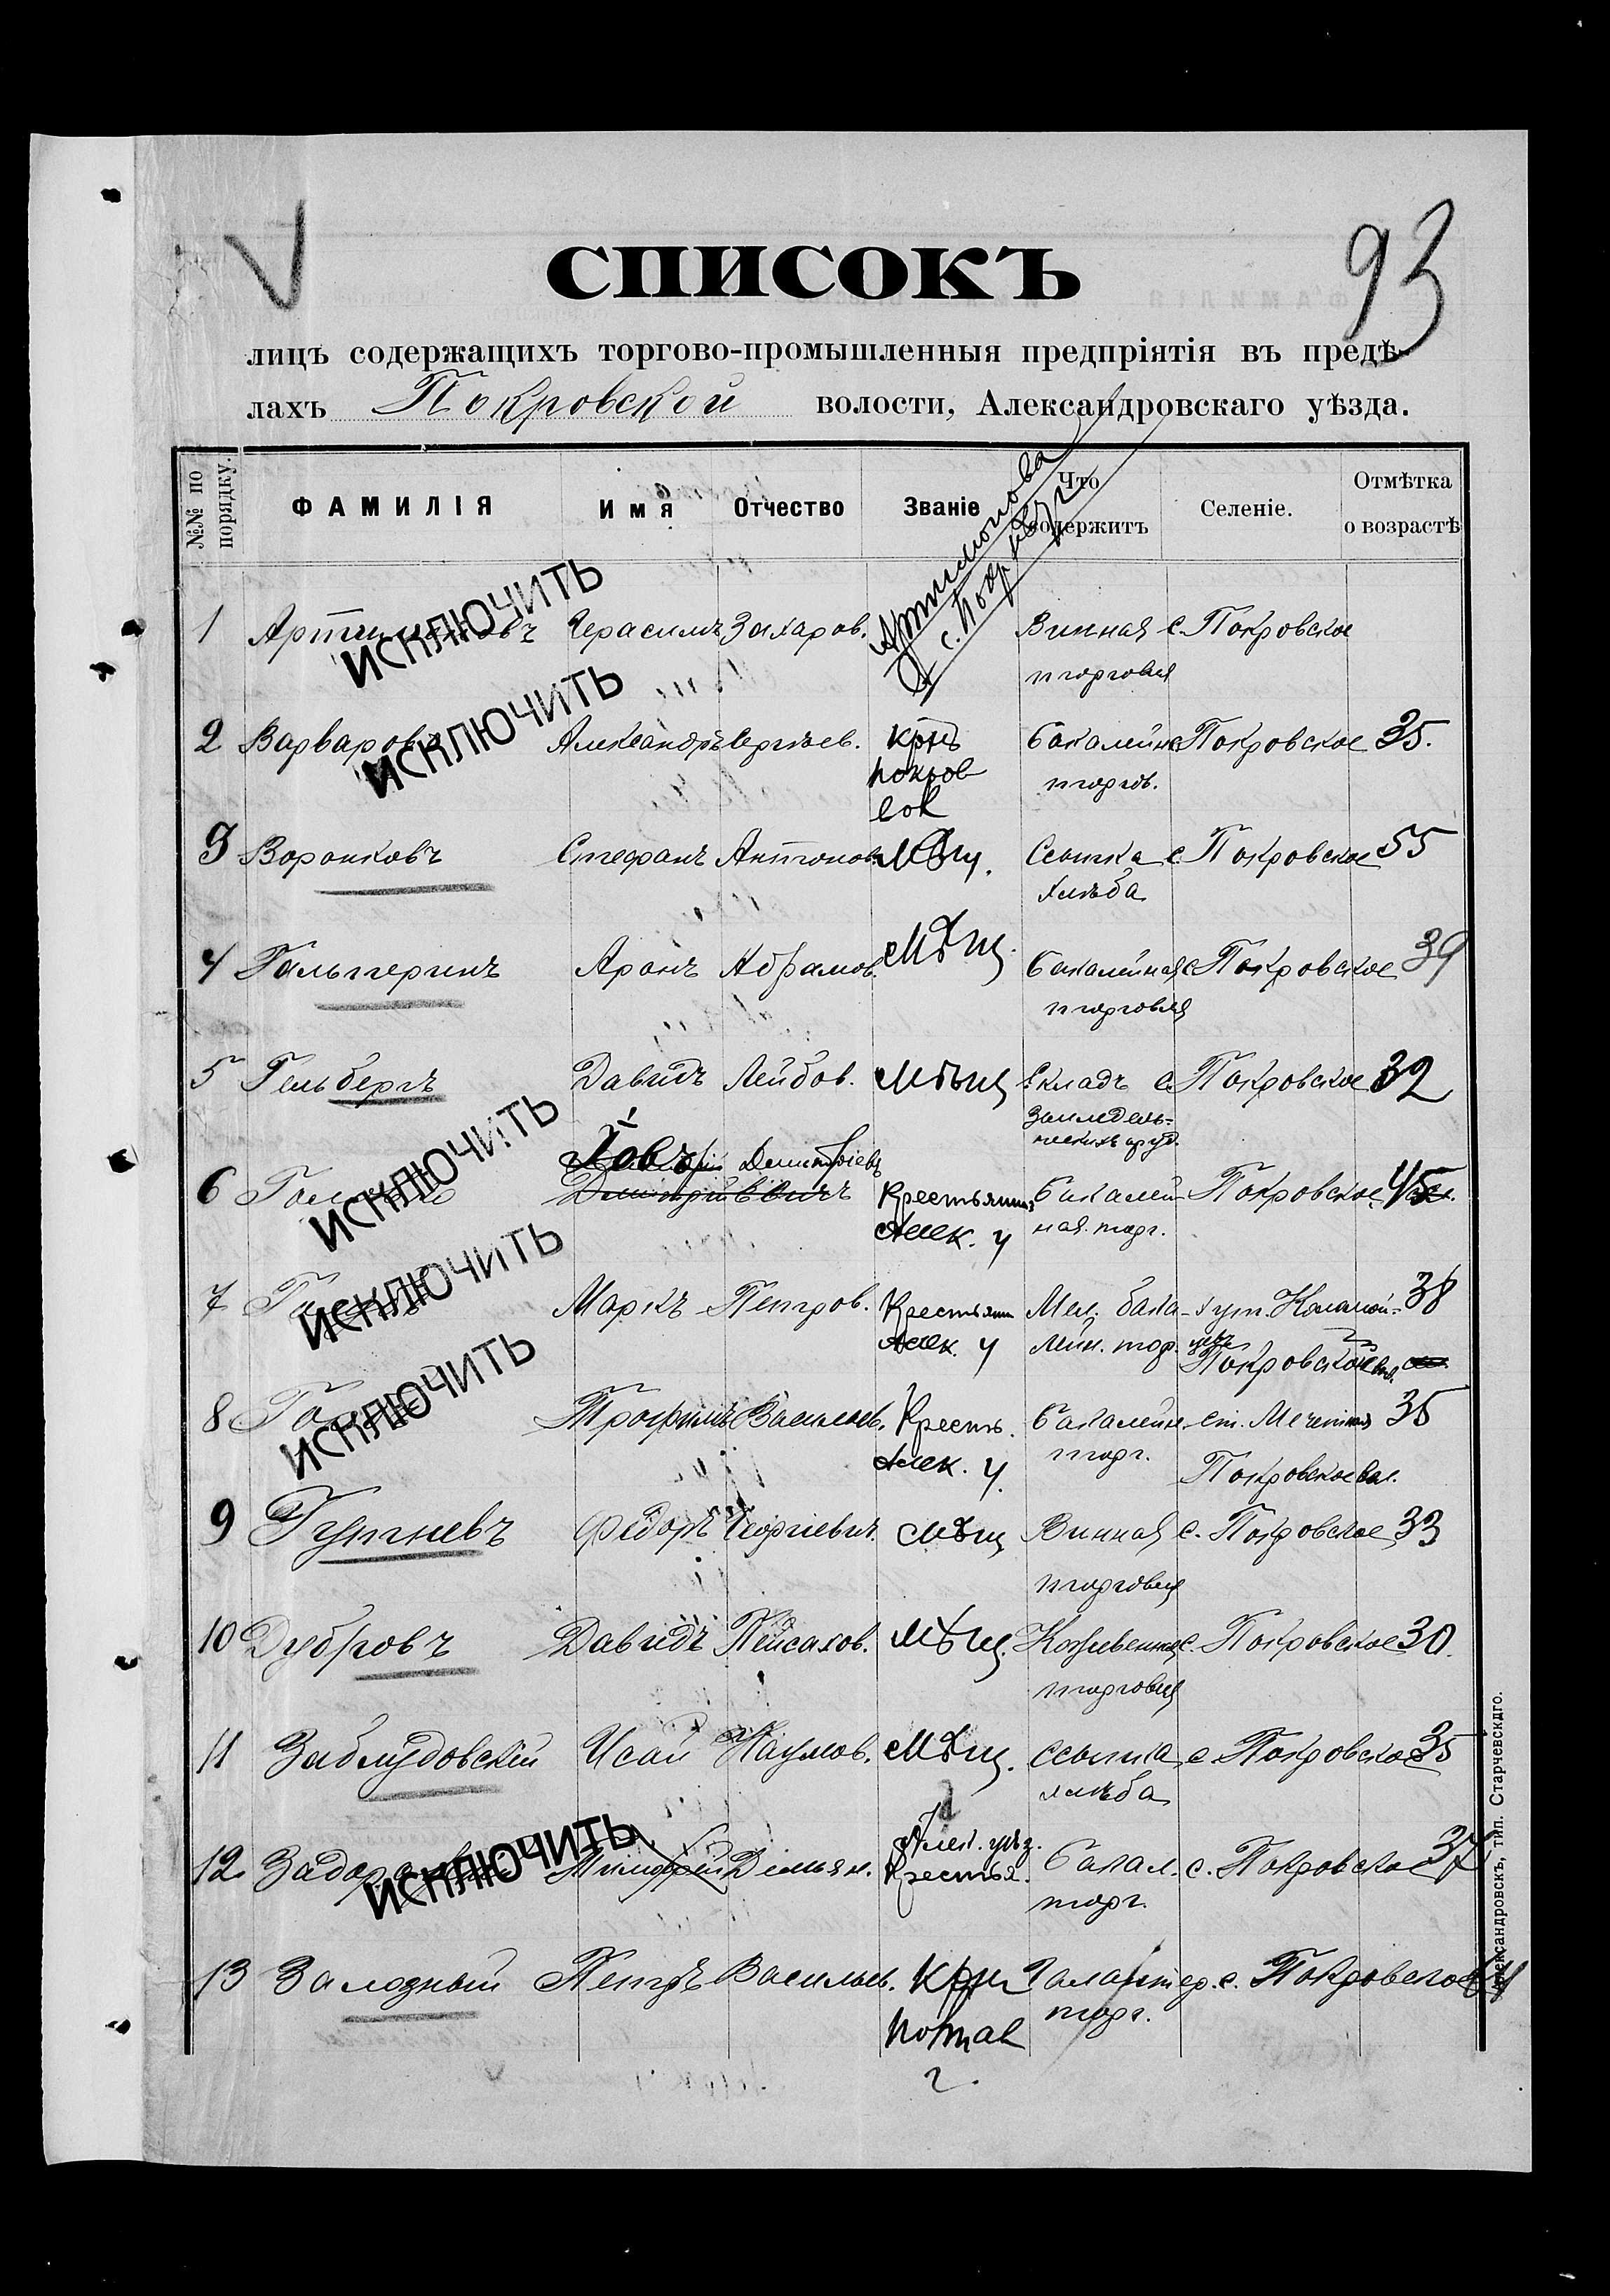 93
СПИСОКЪ
лицъ содержащихъ торгово-промышленныя предпріятія въ предѣ-
лахъ Покровской волости, Александровскаго уѣзда.
№№ по порядку. ФАМИЛІЯ Имя Отчество Званіе Что содержитъ Селеніе. Отмѣтка о возрастѣ
Артимонова
с. Покр
1 Артимоновъ Герасимъ Захаров. Винная с. Покровское
торговля
ИСКЛЮЧИТЬ
2 Варваровъ Александръ Сергѣев. крнъ Бакалейн с Покровское 35.
покров торгов.
сок
ИСКЛЮЧИТЬ
3 Воронковъ Стефанъ Антонов. Мѣщ. Ссыпка с. Покровское 55
хлѣба
4 Гальперинъ Аронъ Абрамов. Мѣщ. Бакалейная с Покровское 39
торговля
5 Гельбергъ Давидъ Лейбов. Мѣщ Складъ с. Покровское 32
Земледель-
ческихъ оруд.
Іовъ Дмитріевъ
6 Крестьянин Бакалей- Покровское 45
Алек. у ная. торг.
ИСКЛЮЧИТЬ
7 Маркъ Петров. Крестьянин Мел. бака- хут. Коломой-
38
Алек. у лейн. тор. цевъ
Покровской вол.
ИСКЛЮЧИТЬ
8 Трофимъ Васильев. Кресть. Бакалейн. ст. Мечетная 35
Алек. у. торг. Покровское вол.
ИСКЛЮЧИТЬ
9 Гутневъ Федоръ Георгіевич. Мѣщ Винная с. Покровское 33
торговля
10 Дубровъ Давидъ Пейсахов. Мѣщ. Кожевенная с. Покровское 30.
торговля
11 Заблудовскій Исай Наумов. Мѣщ. ссыпка с. Покровское 35
хлѣба
Алек. уѣз.
12 Тимофей Демьян. Крестья. Бакал. с. Покровское 37
торг.
ИСКЛЮЧИТЬ
13 Залозный Петръ Васильев. Крн Галантер. с. Покровское
Полтав торг.
г.
Александровскъ, тип. Старчевскаго.